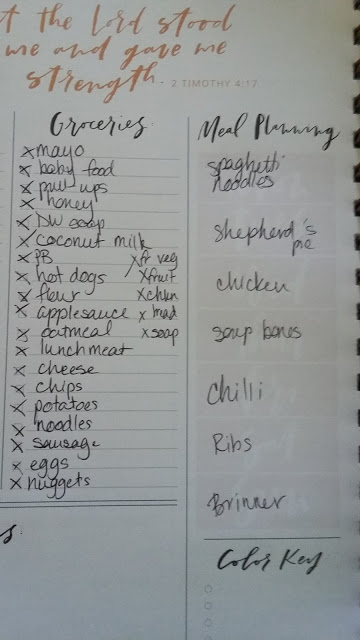 t the Lord stood
me and gave me
strength. 2 TIMOTHY 4:17
Groceries
x mayo
x baby food
x pull ups
x honey
x DW soap
x coconut milk
x PB
x hot dogs
x flour
x applesauce
x oatmeal
x lunchmeat
x cheese
x chips
x potatoes
x noodles
x sausage
x eggs
x nuggets
x fr veg
x fruit
x chkn
x bread
x soap
Meal Planning
spaghetti
noodles
shepherd's
pie
chicken
soup bones
chilli
Ribs
Brinner
s.
Color Key